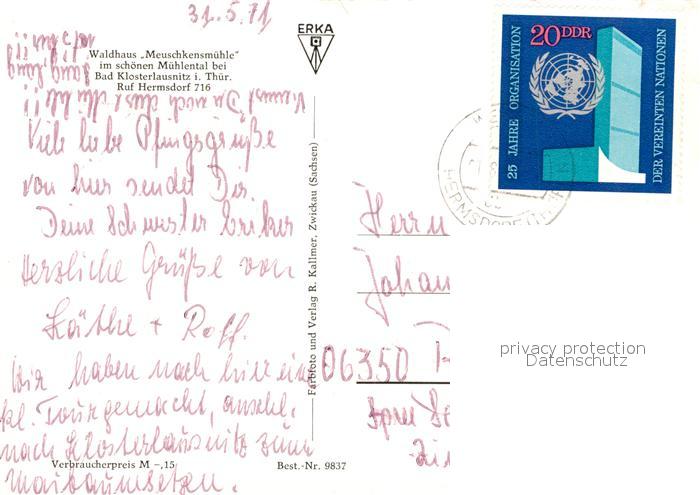 31.5.71
Waldhaus „Meuschkensmühle"
im schönen Mühlental bei
Bad Klosterlausnitz i. Thür.
Ruf Hermsdorf 716
ERKA
20 DDR
25 JAHRE ORGANISATION
DER VEREINTEN NATIONEN
HERMSDORF (THÜR)
Viele liebe Pfingsgrüße
von hier sendet Dir
Deine Schwester
Herzliche Grüße von
Käthe + Rolf.
Wir haben nach hier eine
kl. Tour gemacht, anschl.
nach Klosterlausnitz zum
Maibaumsetzen.
Farbfoto und Verlag R. Kallmer, Zwickau (Sachsen)
Herrn
Johan
06350
privacy protection
Datenschutz
Verbraucherpreis M –,15
Best.-Nr. 9837